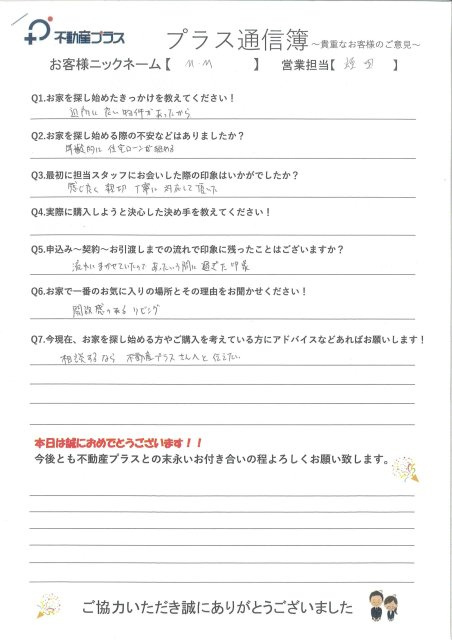 不動産プラス プラス通信簿 ~貴重なお客様のご意見~
お客様ニックネーム【 M.M 】 営業担当【 】
Q1.お家を探し始めたきっかけを教えてください！
近所に良い物件があったから
Q2.お家を探し始める際の不安などはありましたか？
年齢的に住宅ローンが組める
Q3.最初に担当スタッフにお会いした際の印象はいかがでしたか？
感じよく 親切 丁寧に 対応して頂いた
Q4.実際に購入しようと決心した決め手を教えてください！
Q5.申込み～契約～お引渡しまでの流れで印象に残ったことはございますか？
流れにまかせていたので あっという間に過ぎた印象
Q6.お家で一番のお気に入りの場所とその理由をお聞かせください！
開放感のある リビング
Q7.今現在、お家を探し始める方やご購入を考えている方にアドバイスなどあればお願いします！
相談するなら 不動産プラスさんへと伝えたい
本日は誠におめでとうございます！！
今後とも不動産プラスとの末永いお付き合いの程よろしくお願い致します。
ご協力いただき誠にありがとうございました